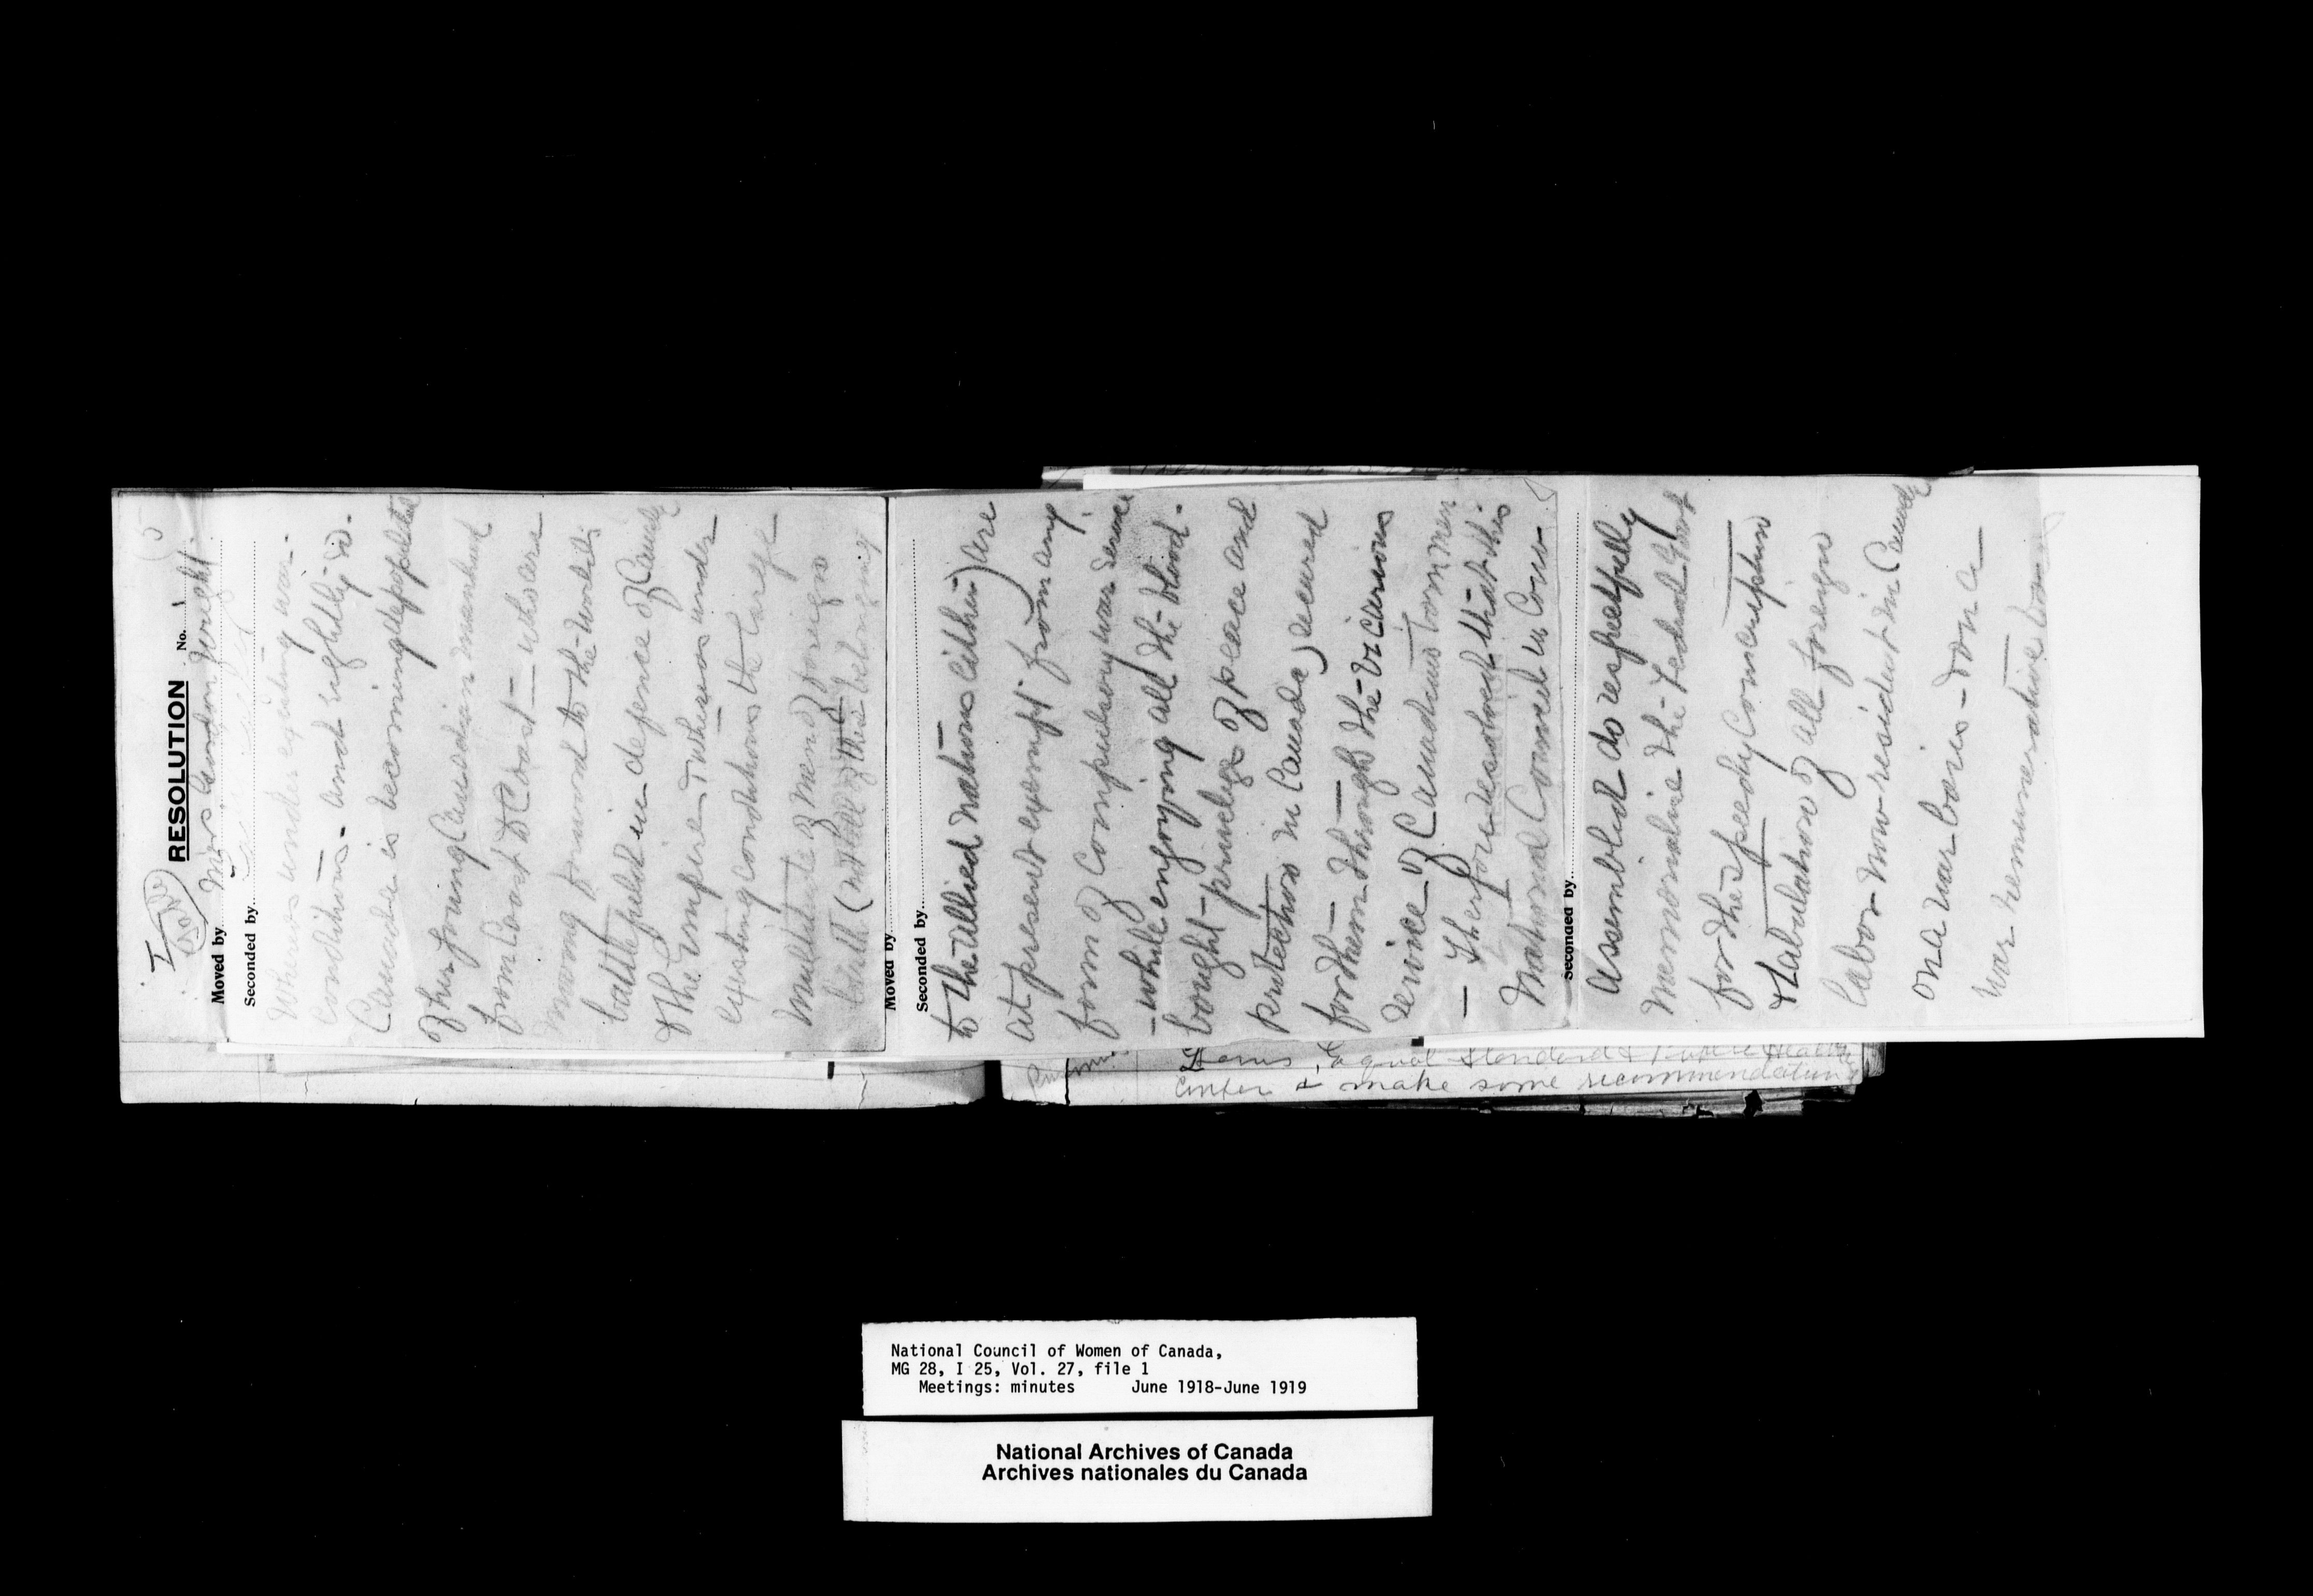 I
RESOLUTION No.
Moved by Mrs Gordon Wright.
Seconded by
Whereas under existing war-
conditions - and rightly so -
Canada is becoming depopulated
of her young Canadian manhood
from Coast to Coast - who are
moving forward to the world's
battlefield in defence of Canada
& the Empire - & whereas under
existing conditions the large
multitude of men of foreign
birth (not all of them belonging
Moved by
Seconded by
to the Allied nations either) are
at present exempt from any
form of compulsory war service
- while enjoying all the blood-
bought privileges of peace and
protection in Canada, secured
for them through the vicarious
service of Canadian born men
- Therefore resolved that this
National Council in Con-
Seconded by
assembled do respectfully
memorialize the Federal Govt
for the speedy conscription
& tabulation of all foreign
labor now resident in Canada
on a war basis - & on a
war remunerative basis
Equal Standard & Public Health
confer & make some recommendations
National Council of Women of Canada,
MG 28, I 25, Vol. 27, file 1
Meetings: minutes June 1918-June 1919
National Archives of Canada
Archives nationales du Canada